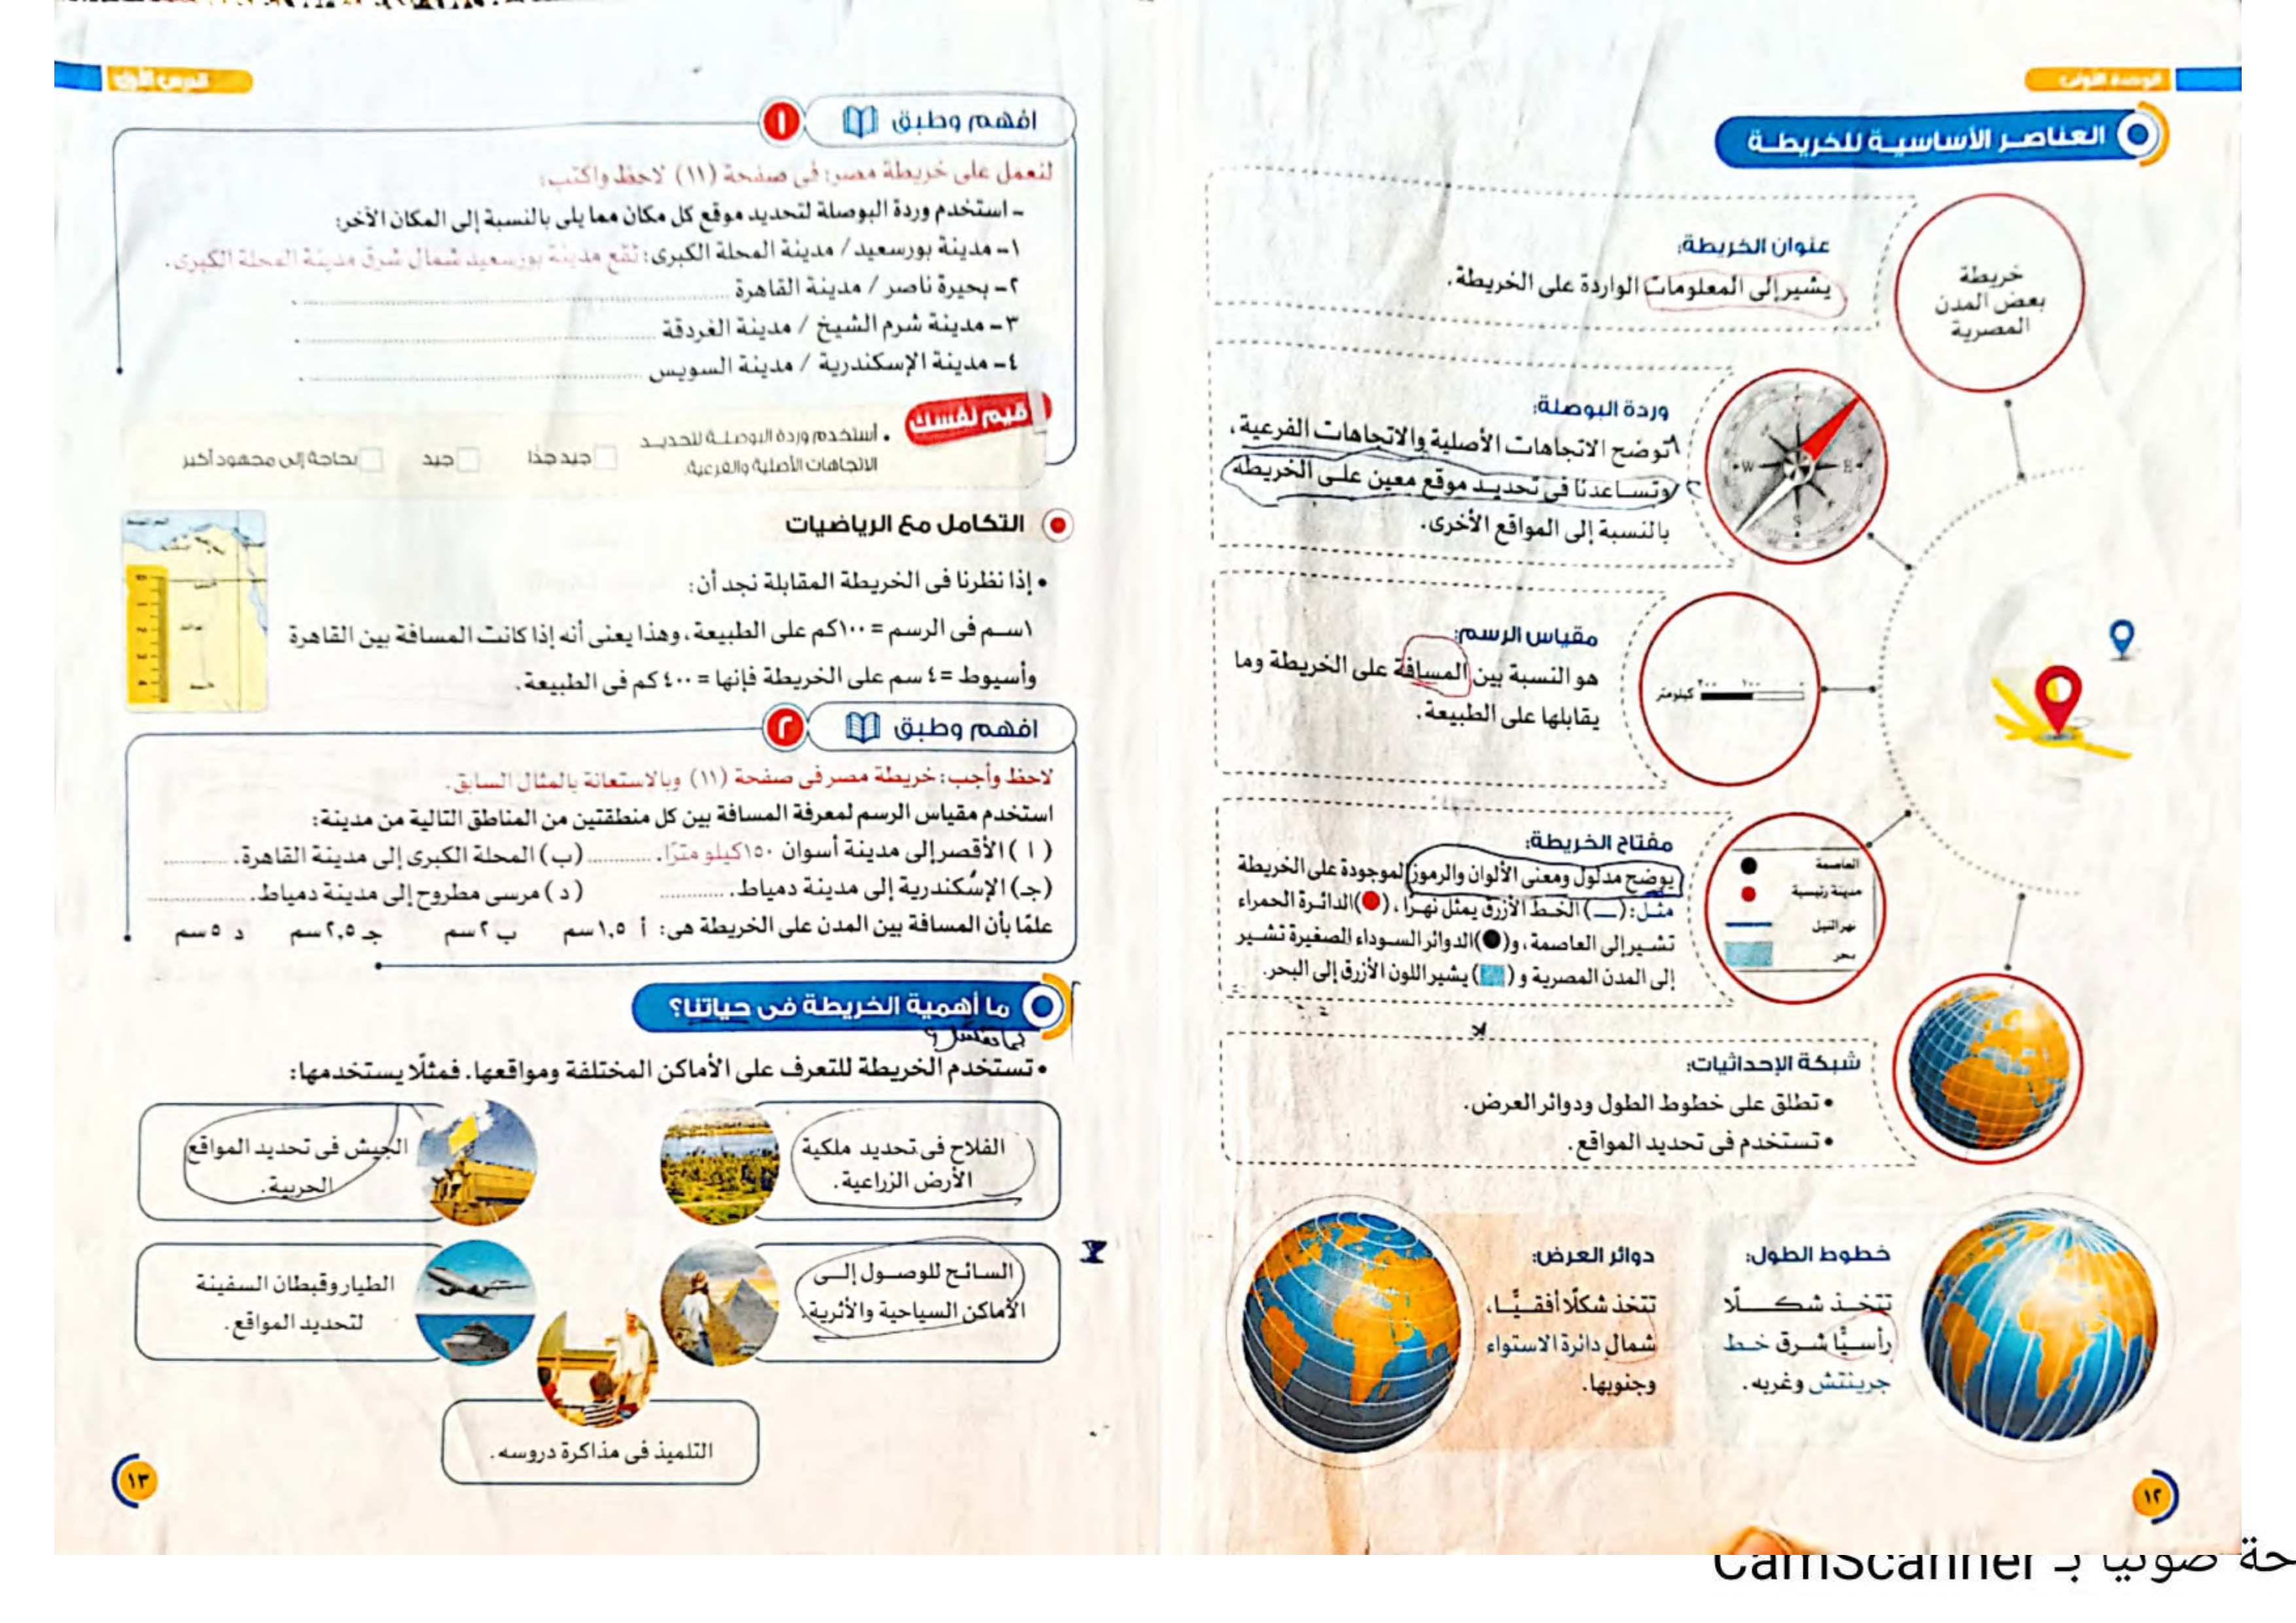 الوحدة الأولى
العناصر الأساسية للخريطة
خريطة
بعض المدن
المصرية
عنوان الخريطة:
يشير إلى المعلومات الواردة على الخريطة.
وردة البوصلة:
توضح الاتجاهات الأصلية والاتجاهات الفرعية،
وتساعدنا فى تحديد موقع معين على الخريطة
بالنسبة إلى المواقع الأخرى.
W
E
S
مقياس الرسم:
هو النسبة بين المسافة على الخريطة وما
يقابلها على الطبيعة.
٢٠٠ ١٠٠ ٠
كيلومتر
مفتاح الخريطة:
يوضح مدلول ومعنى الألوان والرموز الموجودة على الخريطة
مثل: (ـــ) الخط الأزرق يمثل نهرًا، (●) الدائرة الحمراء
تشير إلى العاصمة، و(●) الدوائر السوداء الصغيرة تشير
إلى المدن المصرية و (■) يشير اللون الأزرق إلى البحر.
العاصمة
مدينة رئيسية
نهر النيل
بحر
شبكة الإحداثيات:
• تطلق على خطوط الطول ودوائر العرض.
• تستخدم فى تحديد المواقع.
خطوط الطول:
تتخذ شكلًا
رأسيًّا شرق خط
جرينتش وغربه.
دوائر العرض:
تتخذ شكلًا أفقيًّا،
شمال دائرة الاستواء
وجنوبها.
١٢
الدرس الأول
افهم وطبق
١
لنعمل على خريطة مصر: فى صفحة (١١) لاحظ واكتب:
- استخدم وردة البوصلة لتحديد موقع كل مكان مما يلى بالنسبة إلى المكان الآخر:
١- مدينة بورسعيد / مدينة المحلة الكبرى: تقع مدينة بورسعيد شمال شرق مدينة المحلة الكبرى.
٢- بحيرة ناصر / مدينة القاهرة
٣- مدينة شرم الشيخ / مدينة الغردقة
٤- مدينة الإسكندرية / مدينة السويس
قيم نفسك
• أستخدم وردة البوصلة لتحديد
الاتجاهات الأصلية والفرعية.
جيد جدًا
جيد
بحاجة إلى مجهود أكبر
التكامل مع الرياضيات
• إذا نظرنا فى الخريطة المقابلة نجد أن:
١سم فى الرسم = ١٠٠كم على الطبيعة، وهذا يعنى أنه إذا كانت المسافة بين القاهرة
وأسيوط = ٤ سم على الخريطة فإنها = ٤٠٠ كم فى الطبيعة.
افهم وطبق
٢
لاحظ وأجب: خريطة مصر فى صفحة (١١) وبالاستعانة بالمثال السابق.
استخدم مقياس الرسم لمعرفة المسافة بين كل منطقتين من المناطق التالية من مدينة:
(أ) الأقصر إلى مدينة أسوان ١٥٠كيلو مترًا. (ب) المحلة الكبرى إلى مدينة القاهرة.
(جـ) الإسكندرية إلى مدينة دمياط. (د) مرسى مطروح إلى مدينة دمياط.
علمًا بأن المسافة بين المدن على الخريطة هى: أ ١,٥ سم ب ٢ سم جـ ٢,٥ سم د ٥ سم
ما أهمية الخريطة فى حياتنا؟
• تستخدم الخريطة للتعرف على الأماكن المختلفة ومواقعها. فمثلًا يستخدمها:
الفلاح فى تحديد ملكية
الأرض الزراعية.
الجيش فى تحديد المواقع
الحربية.
السائح للوصول إلى
الأماكن السياحية والأثرية.
الطيار وقبطان السفينة
لتحديد المواقع.
التلميذ فى مذاكرة دروسه.
١٣
حة ضوئيا بـ CamScanner